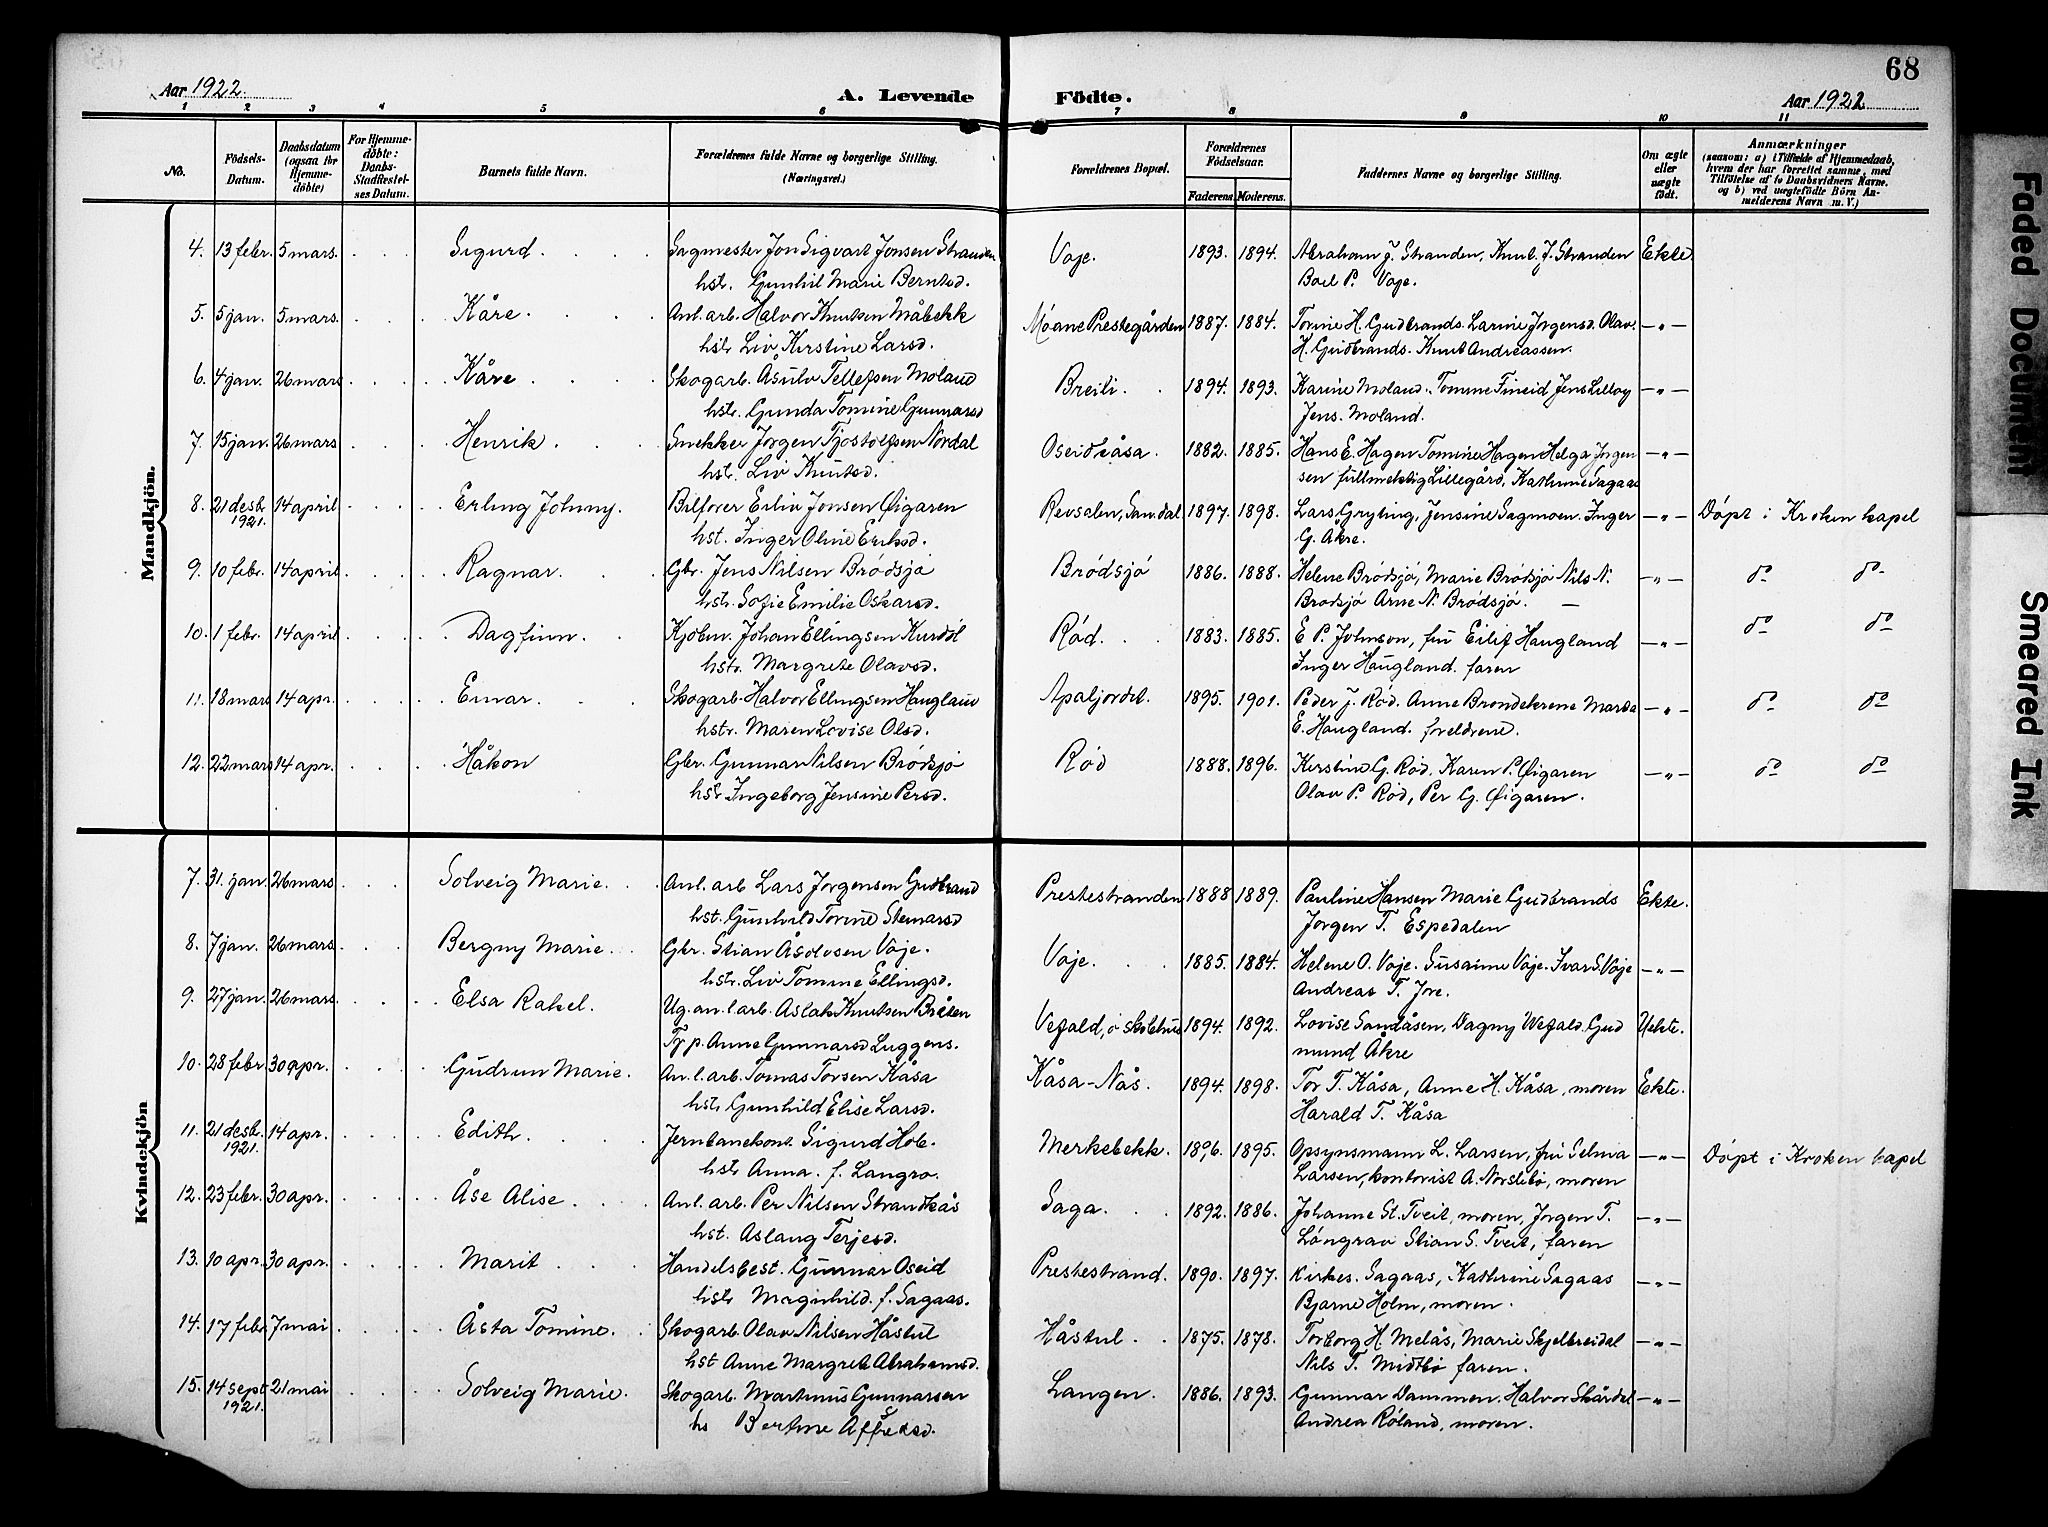 68
Aar 1922.
A. Levende Födte.
Aar 1922
1 2 3 4 5 6 7 8 9 10 11
No.
Födsels-Datum.
Daabsdatum (ogsaa for Hjemmedöbte)
For Hjemmedöbte: Daabs-Stadfestelses Datum.
Barnets fulde Navn.
Forældrenes fulde Navne og borgerlige Stilling. (Næringsvei.)
Forældrenes Bopæl.
Forældrenes Födselsaar.
Faderens. Moderens.
Faddernes Navne og borgerlige Stilling.
Om ægte eller uægte födt.
Anmærkninger (saasom: a) i Tilfælde af Hjemmedaab, hvem der har forrettet samme, med Tilföielse af to Daabsvidners Navne, og b) ved uægtefödte Börn Anmelderens Navn m. V.)
Mandkjön.
4. 13 febr. 5 mars. Sigurd. Sagmester Jon Sigvart Jensen Stranden Voje. 1893. 1894. Abraham J. Stranden, Knut J. Stranden Ekte.
hstr. Gunhil Marie Berntsd. Boel P. Voje.
5. 5 jan. 5 mars. Kåre. Anl. arb. Halvor Knutsen Måbekk Moane Prestegården 1887. 1884. Torine H. Gudbrands. Larine Jørgensd. Olav. —"—
hstr Liv Kirstine Larsd. H. Gudbrands. Knut Andreassen.
6. 4 jan. 26 mars Kåre. Skogarb. Åsulv Tellefsen Moland Breili. 1894. 1893. Karine Moland. Tomine Fineid Jens Lilley —"—
hstr. Gunda Tomine Gunnarsd Jens. Moland.
7. 15 jan. 26 mars Henrik. Snekker Jørgen Tjostolfsen Nordal Oseidkåsa. 1882. 1885. Hans E. Hagen Tomine Hagen Helga Jørgen —"—
hst. Liv Knutsd. sen fullmektig Lillegård, Kathrine Sagaas
8. 21 desb. 1921. 14 april Erling Johnny. Bilfører Eiliv Jensen Øigaren Revsalen, Sandal 1897. 1898. Lars Gryting, Jensine Sagmoen. Inger —"— Døpt i Kroken kapel
hst. Inger Oline Eriksd. G. Åkre.
9. 10 febr. 14 april Ragnar. Gbr. Jens Nilsen Brødsjø Brødsjø 1886. 1888. Helene Brødsjø, Marie Brødsjø Nils N. —"— do do
hstr. Sofie Emilie Oskarsd. Brødsjø Arne N. Brødsjø. —
10. 1 febr. 14 april Dagfinn. Kjøbm. Johan Ellingsen Kurdøl Rød. 1883. 1885. E P. Johnson, fru Eilif Haugland —"— do do
hstr. Margrete Olavsd. Inger Haugland. faren
11. 18 mars 14 apr. Einar. Skogarb. Halvor Ellingsen Hauglan Apaljordet. 1895. 1901. Peder J. Rød. Anne Brondekrene Marta —"— do do
hstr. Maren Lovise Olsd. E. Haugland. foreldrene.
12. 22 mars 14 apr. Håkon Gbr. Gunnar Nilsen Brødsjø Rød 1888. 1896. Kirstine G. Rød, Karen P. Øigaren —"— do do
hstr Ingeborg Jensine Persd. Olav P. Rød, Per G. Øigaren.
Kvindekjön
7. 31. jan. 26 mars Solveig Marie. Anl. arb Lars Jørgensen Gudbrand Prestestranden 1888 1889. Pauline Hansen Marie Gudbrands Ekte.
hst. Gunhild Torine Steinarsd Jørgen T. Espedalen
8. 7 jan. 26 mars Bergny Marie. Gbr. Stian Åsolvsen Voje. Voje. 1885. 1884. Helene O. Voje. Susanne Voje. Ivar S. Voje —"—
hstr. Liv Tomine Ellingsd. Andreas T. Jore.
9. 27 jan. 26 mars. Elsa Rakel. Ug. anl. arb. Aslak Knutsen Bråten Vefald, ø skolehus 1894. 1892. Lovise Sandåsen, Dagny Wefald. Gud Uekte.
Tj p. Anne Gunnarsd Luggens. mund Åkre
10. 28 febr 30 apr. Gudrun Marie. Anl. arb. Tomas Torsen Kåsa Kåsa-Nås. 1894. 1898. Tor T. Kåsa, Anne H. Kåsa, moren Ekte.
hstr Gunhild Elise Larsd. Harald T. Kåsa
11. 21 desb. 1921. 14 apr. Edith. Jernbanekont. Sigurd Hob. Merkebekk. 1896. 1895. Opsynsmann L. Larsen, fru Selma —"— Døpt i Kroken kapel
hstr Anna. f. Langrø. Larsen, kontorist A. Norslebø, moren
12. 23 febr. 30 apr. Åse Alise. Anl. arb. Per Nilsen Strandkås Saga. 1892. 1886. Johanne St. Tveit, moren, Jørgen T. —"—
hst. Aslaug Terjesd. Løngrav Stian S. Tveit, faren
13. 10 apr. 30 apr. Marit Handelsbest. Gunnar Oseid Prestestrand. 1890. 1897. Kirkes. Sagaas, Kathrine Sagaas —"—
hstr Magnhild. f. Sagaas. Bjarne Holm, moren.
14. 17 febr 7 mai Åsta Tomine. Skogarb. Olav Nilsen Håstul Håstul. 1875. 1878. Torborg H. Melås, Marie Skjelbreidal —"—
hst Anne Margret Abrahamsd. Nils T. Midtbø faren.
15. 14 sept 1921. 21 mai Solveig Marie. Skogarb. Martinus Gunnarsen Langen. 1886. 1893. Gunnar Dammen. Halvor Skårdal —"—
hs Bertine Alfredsd. Andrea Røland, moren.
Faded Document
Smeared Ink